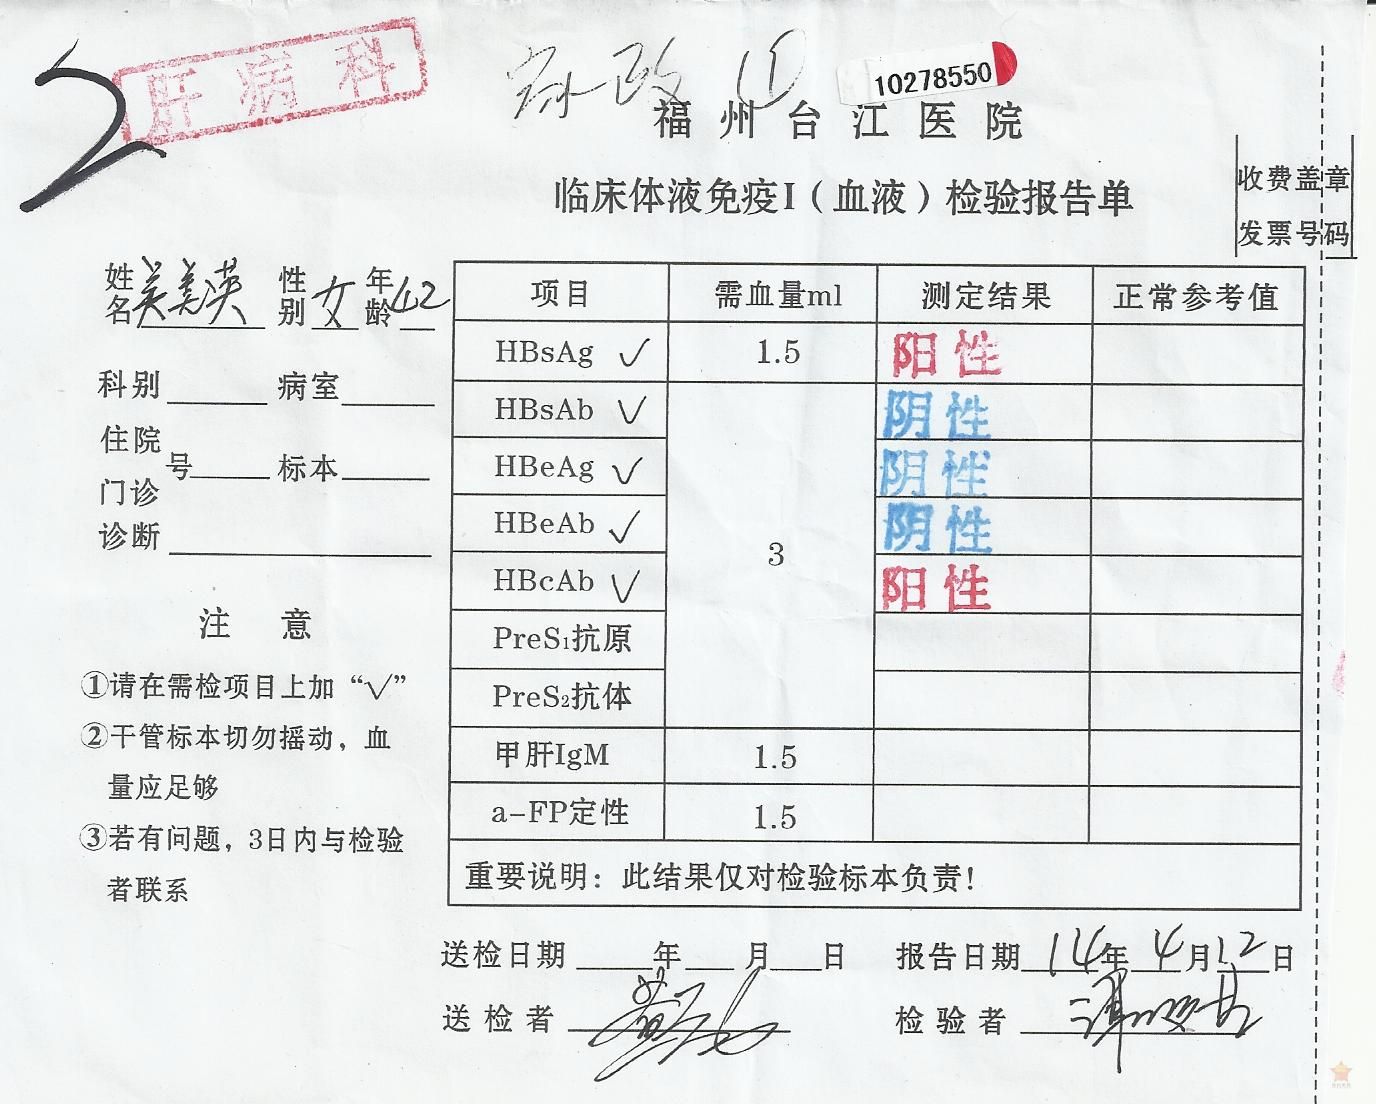 肝病科
10278550
福州台江医院
临床体液免疫I（血液）检验报告单
收费盖章
发票号码
姓名 性别 女 年龄 42
科别 病室
住院
门诊 号 标本
诊断
注 意
①请在需检项目上加“√”
②干管标本切勿摇动，血
量应足够
③若有问题，3日内与检验
者联系
项目 需血量ml 测定结果 正常参考值
HBsAg √ 1.5 阳性
HBsAb √ 阴性
HBeAg √ 阴性
HBeAb √ 3 阴性
HBcAb √ 阳性
PreS₁抗原
PreS₂抗体
甲肝IgM 1.5
a-FP定性 1.5
重要说明：此结果仅对检验标本负责！
送检日期 年 月 日 报告日期 14年4月12日
送检者 检验者